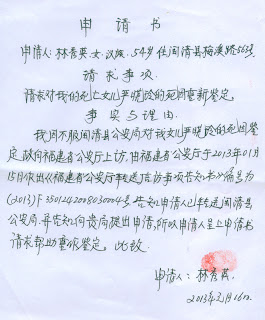 申请书
申请人：林秀英，女，汉族，54岁住闽清县梅溪路56号
请求事项
请求对我的死亡女儿严晓玲的死因重新鉴定。
事实与理由
我因不服闽清县公安局对我女儿严晓玲的死因鉴
定，故向福建省公安厅上访，由福建省公安厅于2013年01月
15日作出《福建省公安厅转送信访事项告知书》编号为
(2013)F3501242008030004号告知申请人已转送闽清县
公安局，并告知向贵局提出申请，所以申请人呈上申请书
请求帮助重依鉴定。此致
申请人：林秀英
2013年2月16日